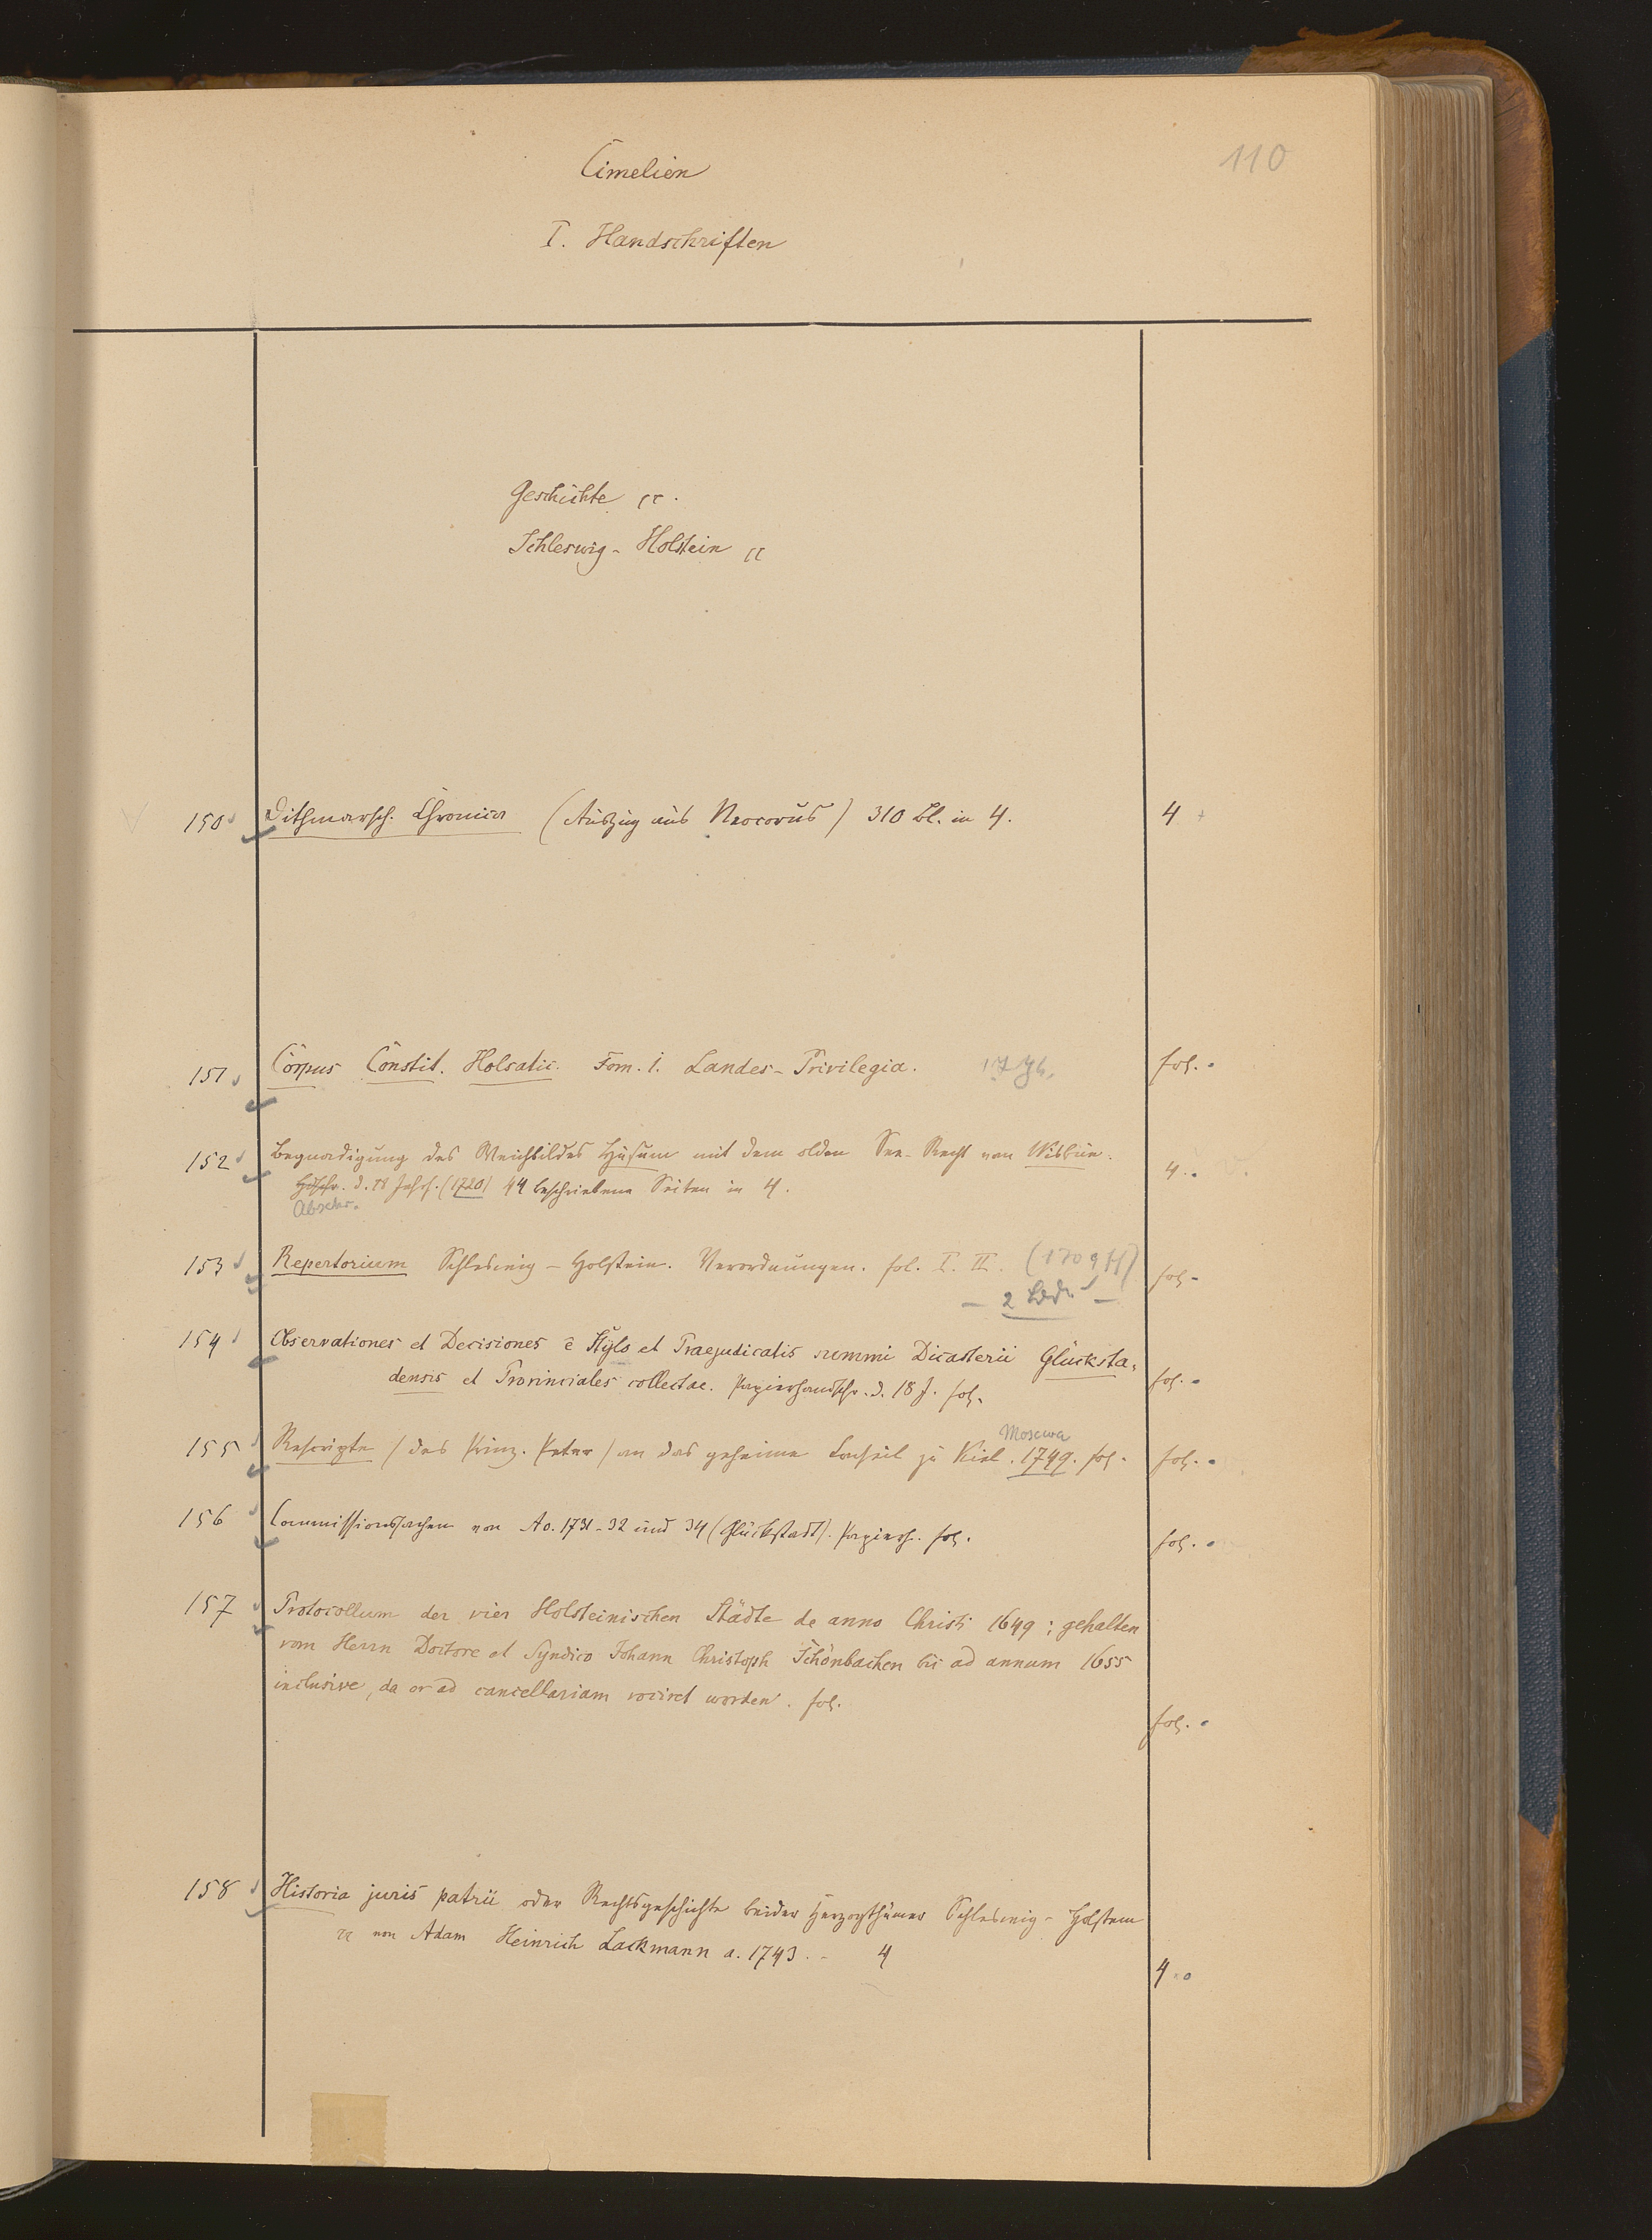 110
Cimelien
I. Handschriften
Geschichte cc.
Schleswig-Holstein cc
150 Dithmarsch. Chronica (Auszug aus Neocorus) 310 Bl. in 4. 4
151 Corpus Constit. Holsatic. Tom. I. Landes-Privilegia. 17 Jh. fol.
152 Begnadigung des Weichbildes Husum mit dem olden See-Recht van Wisbue. 4.
Hdschr. d. 18 Jahrh. (1720) 44 beschriebene Seiten in 4.
Abschr.
153 Repertorium Schleswig-Holstein. Verordnungen. fol. I. II. (1709 ff) fol.
– 2 Bde –
154 Observationes et Decisiones e Stylo et Praejudicatis summi Dicasterii Glücksta-
densis et Provinciales collectae. Papierhandschr. d. 18 J. fol. fol.
Moscwa
155 Rescripte (des Prinz. Peter) an das geheime Conseil zu Kiel. 1749. fol. fol.
156 Commissionssachen von Ao. 1731-32 und 34 (Glückstadt). Papierh. fol. fol.
157 Protocollum der vier Holsteinischen Städte de anno Christi 1649; gehalten
vom Herrn Doctore et Syndico Johann Christoph Schönbachen bis ad annum 1655
inclusive, da er ad cancellariam vociret worden. fol. fol.
158 Historia juris patrii oder Rechtsgeschichte beider Herzogthümer Schleswig-Holstein
cc von Adam Heinrich Lackmann a. 1743. – 4 4